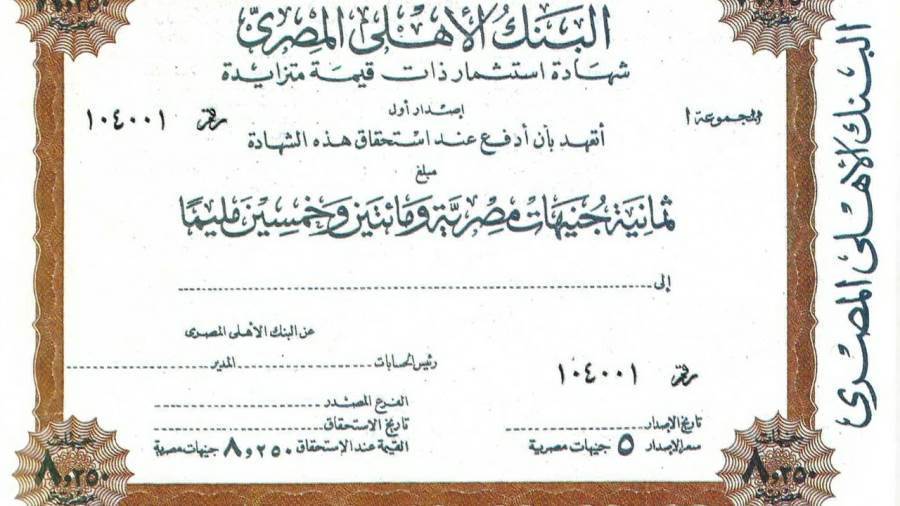 ٨٫٢٥٠
٨٫٢٥٠
البنك الأهلى المصرى
شهادة استثمار ذات قيمة متزايدة
إصدار أول
المجموعة ١
رقم ١٠٤٠٠١
أتعهد بأن أدفع عند استحقاق هذه الشهادة
مبلغ
ثمانية جنيهات مصرية ومائتين وخمسين مليمًا
إلى
عن البنك الأهلى المصرى
رئيس الحسابات المدير
رقم ١٠٤٠٠١
الفرع المصدر
تاريخ الإصدار
تاريخ الاستحقاق
سعر الإصدار ٥ جنيهات مصرية
القيمة عند الإستحقاق ٨٫٢٥٠ جنيهات مصرية
جنيهات
٨٫٢٥٠
مصرية
جنيهات
٨٫٢٥٠
مصرية
البنك الأهلى المصرى